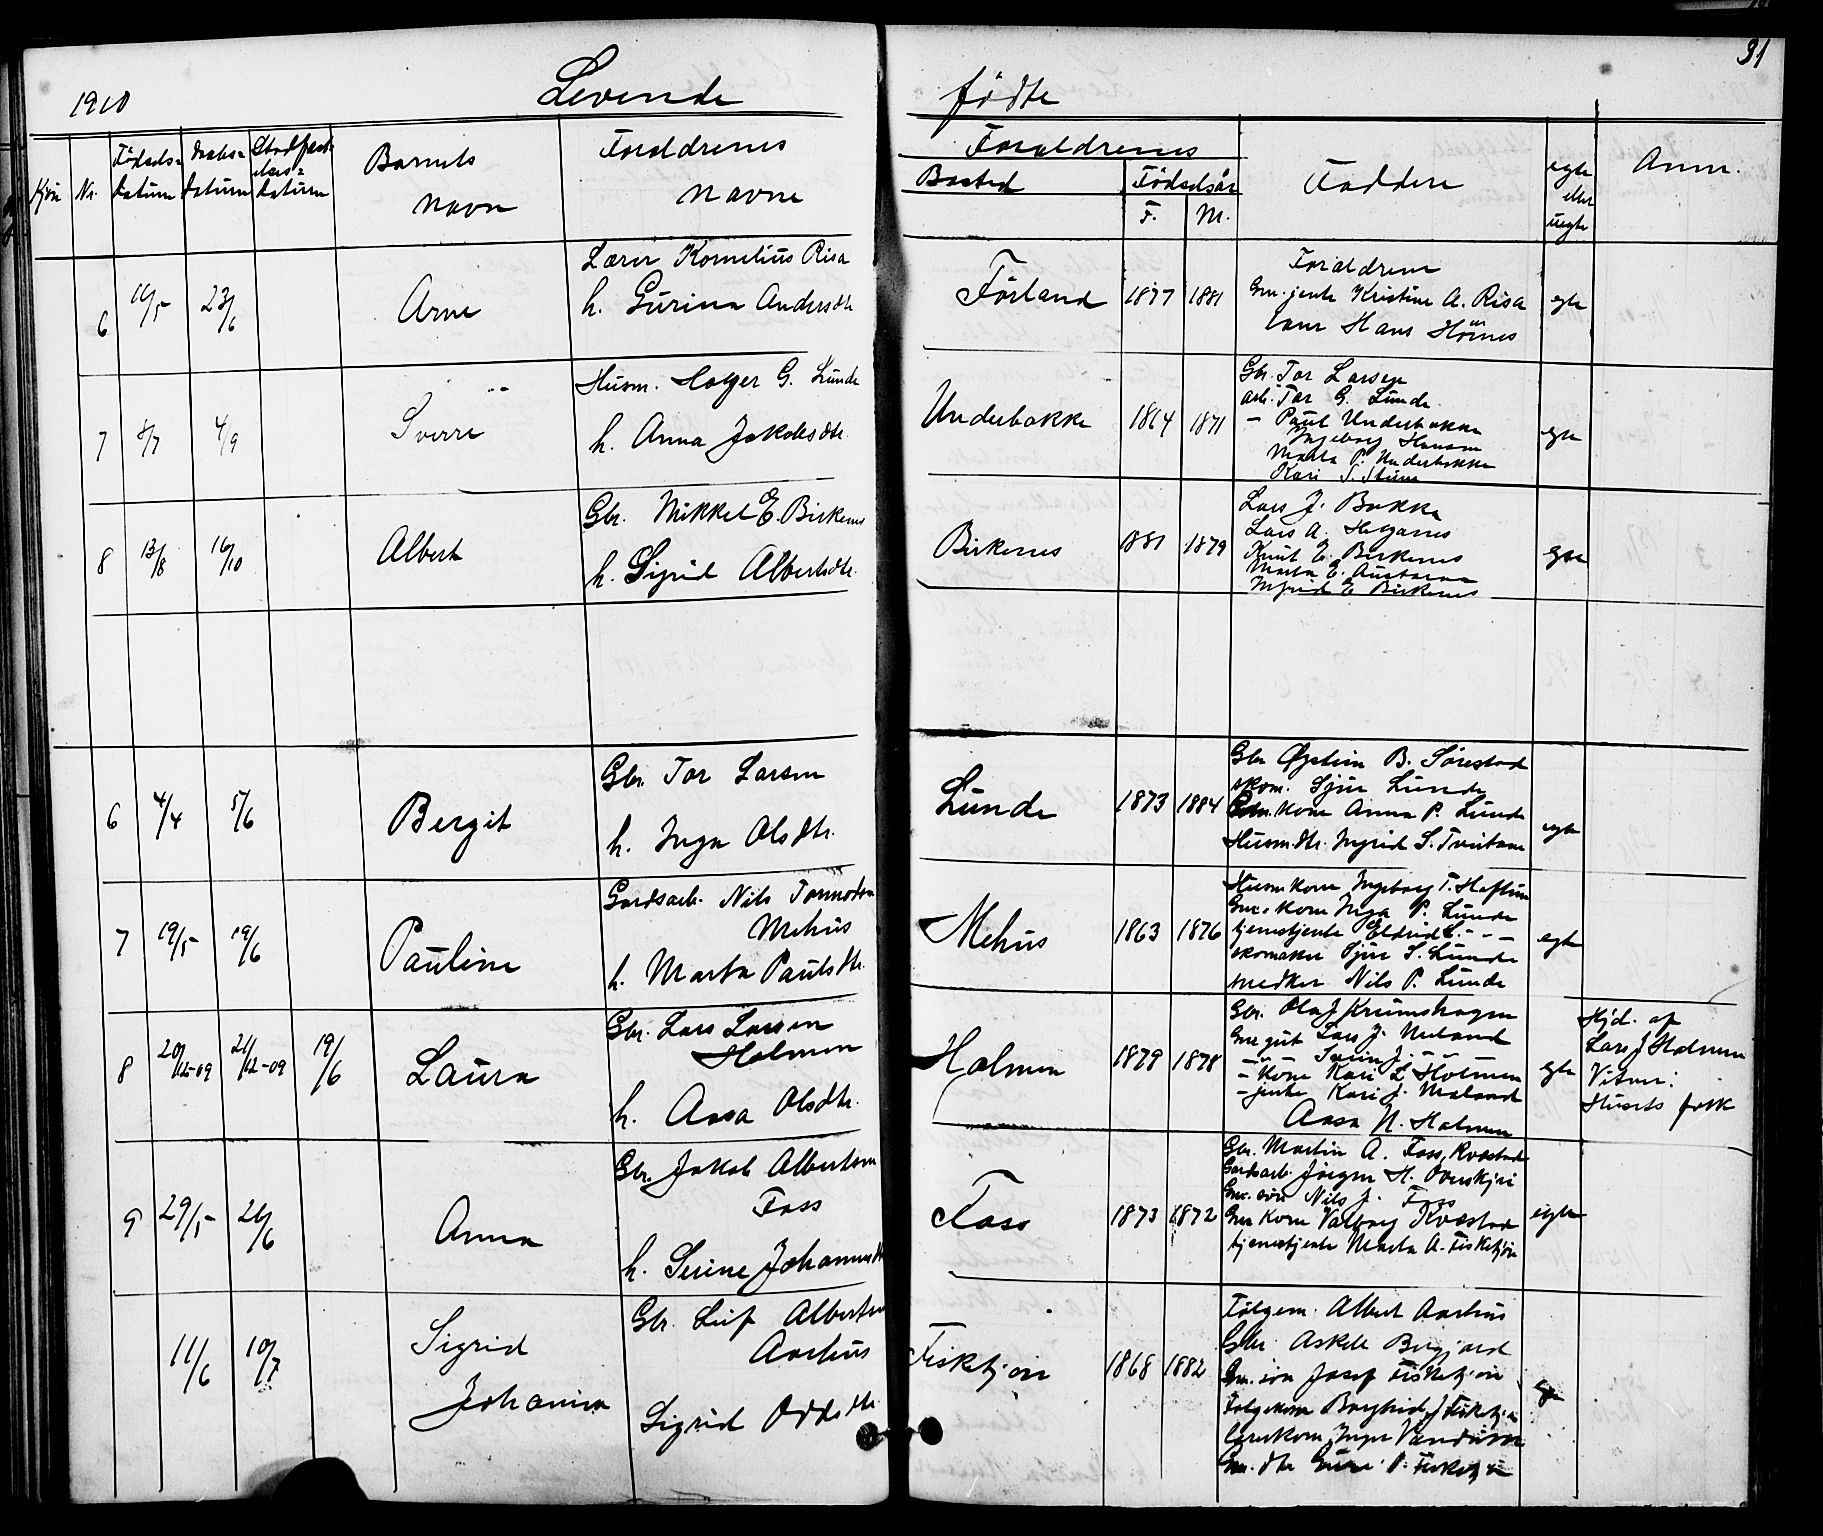 31
1910 Levende fødte
Kjön Nr. Födsels- Datum Daabs- Datum Stadfæst- elses- Datum Barnets Navn Forældrenes Navne
Forældrenes
Bosted Födselsår F. M. Faddere egte eller uegte Anm.
6 16/5 23/6 Arne
Lærer Kornelius Risa
h. Gurina Andersdtr
Förland 1877 1881
Foraldrene
Gm. jente Kristine A. Risa
Hans
egte
7 8/7 4/9 Sverre
Husm. Holger G. Lunde
h. Anna Jakobsdtr.
Underbakke 1864 1871
Gbr. Tor Larsen
arb. Tor G. Lunde
- Paul Underbakke
Ingeborg Hansen
Marta P. Underbakke
Kari
egte
8 13/8 16/10 Albert
Gbr. Mikkel E. Birkenes
h. Sigrid Albertsdtr.
Birkenes 1881 1879
Lars J. Bakke
Lars A. Helganes
Knut E. Birkenes
Marta E.
Ingrid E Birkenes
egte
6 4/4 5/6 Bergit
Gbr. Tor Larsen
h. Inga Olsdtr.
Lunde 1873 1884
Gbr Øystein B. Sörestad
skom. Sjur Lunde
Kone Anna P. Lunde
Husm.dtr. Ingrid S. Tveitane
egte
7 19/5 19/6 Pauline
Gardsarb. Nils Tormodsen
Mehus
h. Marta Paulsdtr.
Mehus 1863 1876
Husm kone Ingeborg T. Haftun
Gm. kone Inga P. Lunde
tjenestjente Eldrid L. - - -
skomaker Sjur S. Lunde
snedker Nils P. Lunde
egte
8 20/12-09 21/12-09 19/6 Laura
Gbr. Lars Larsen
Holmen
h. Aasa Olsdtr.
Holmen 1879 1878
Gbr. Olaf Krumshagen
Gm gut Lars J. Meland
- " - J. - " -
- Kone Kari L Holmen
- jente Kari J. Meland
Aasa N. Holmen
egte
Hjd. af
Lars J Holmen
Vitner:
Husets folk
9 29/5 26/6 Anna
Gbr. Jakob Albertsen
Foss
h. Serine Johannesdtr
Foss 1873 1872
Gbr. Martin A. Foss, Kvæstad
Gardsarb. Jörgen H. Överskjei
Gm. sön Nils J. Foss
Gm Kone Valborg Kvæstad
tjenestjente Marta A. Fisketjön
egte
11/6 10/7 Sigrid
Johanna
Gbr. Leif Albertsen
Aarhus
Sigrid Oddsdtr.
Fisketjön 1868 1882
Fölgem. Albert Aarhus
Gbr. Askell Bergjord
Gm. sön Josef Fisketjön
Fölgekone Borghild J Fisketjön
Inger
Gm. dtr P. Fisketjön
egte